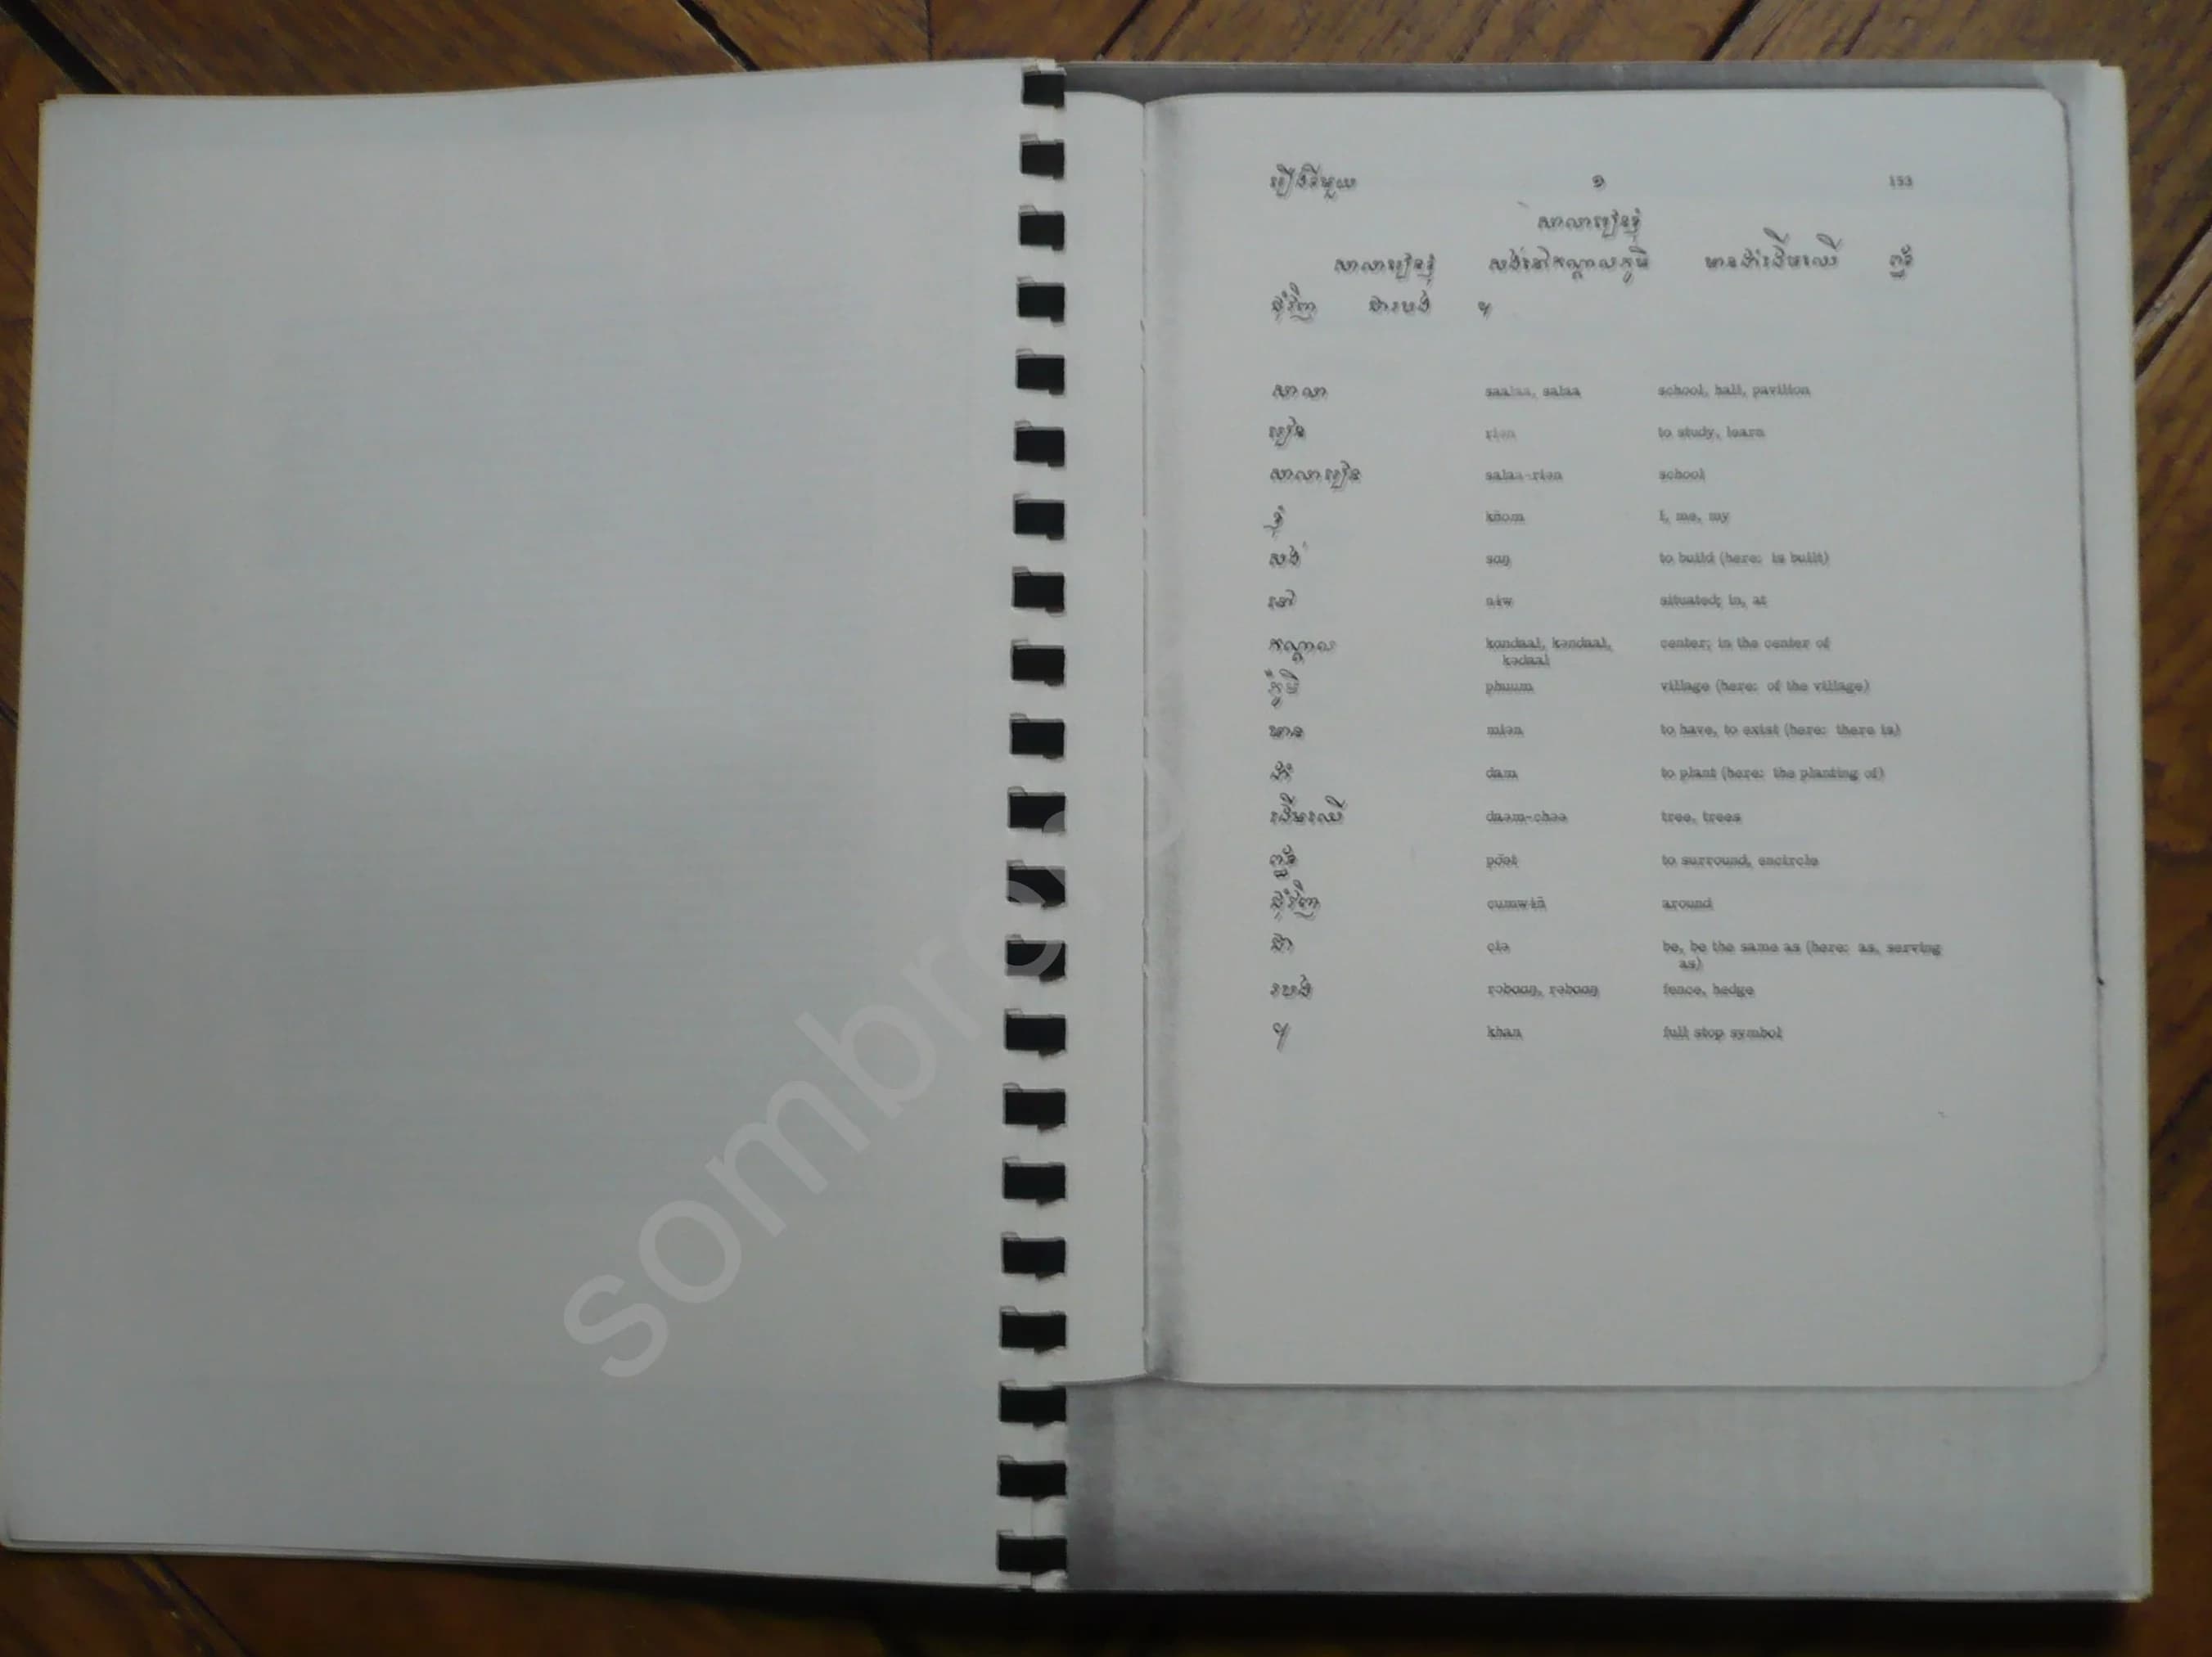 រឿងទីមួយ ១ 153
សាលារៀនខ្ញុំ
សាលារៀនខ្ញុំ សង់នៅកណ្តាលភូមិ មានដាំដើមឈើ ព័ទ្ធ
ជុំវិញ ជារបង ។
សាលា saalaa, salaa school, hall, pavilion
រៀន riən to study, learn
សាលារៀន salaa-riən school
ខ្ញុំ kñom I, me, my
សង់ sɑŋ to build (here: is built)
នៅ nɨw situated; in, at
កណ្តាល kɑndaal, kəndaal, center; in the center of
kədaal
ភូមិ phuum village (here: of the village)
មាន miən to have, to exist (here: there is)
ដាំ dam to plant (here: the planting of)
ដើមឈើ daəm-chəə tree, trees
ព័ទ្ធ pŏət to surround, encircle
ជុំវិញ cumwɨñ around
ជា ciə be, be the same as (here: as, serving
as)
របង rɔbɑɑŋ, rəbɑɑŋ fence, hedge
។ khan full stop symbol
sombro